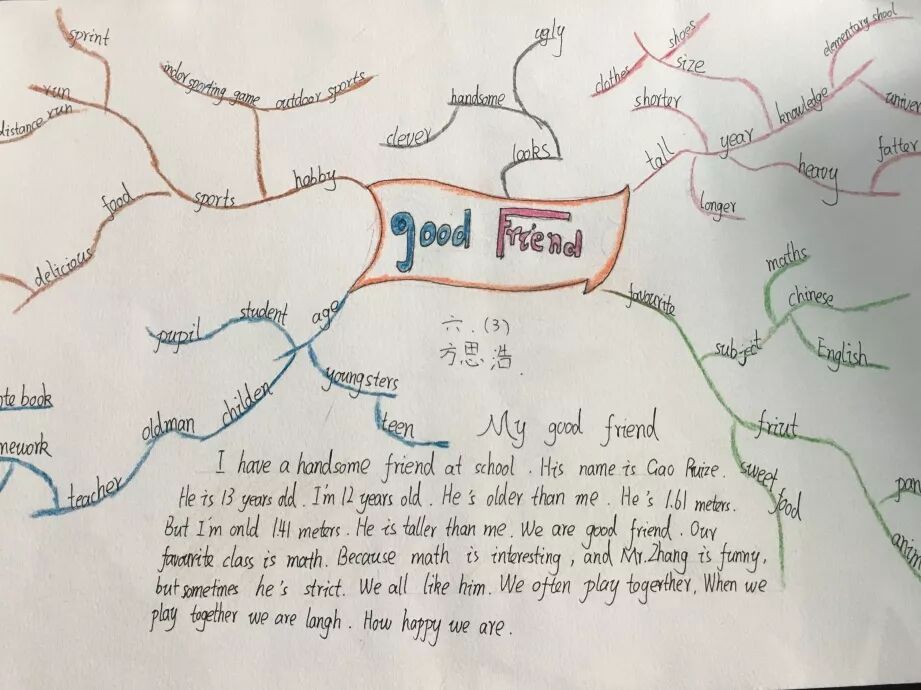 sprint
run
distance run
indor sporting game
outdoor sports
hobby
sports
food
delicious
ugly
handsome
clever
looks
shoes
size
clothes
shorter
tall
year
longer
knowledge
elementary shool
univer
heavy
fatter
good Friend
六.(3)
方思浩.
age
student
pupil
youngsters
teen
childen
oldman
teacher
ote book
mework
favourite
subject
maths
chinese
English
friut
sweet
food
pan
anim
My good friend
I have a handsome friend at school. His name is Gao Ruize.
He is 13 years old. I'm 12 years old. He's older than me. He's 1.61 meters.
But I'm onld 1.41 meters. He is taller than me. We are good friend. Our
favourite class is math. Because math is interesting, and Mr.Zhang is funny,
but sometimes he's strict. We all like him. We often play togerther, When we
play together we are langh. How happy we are.